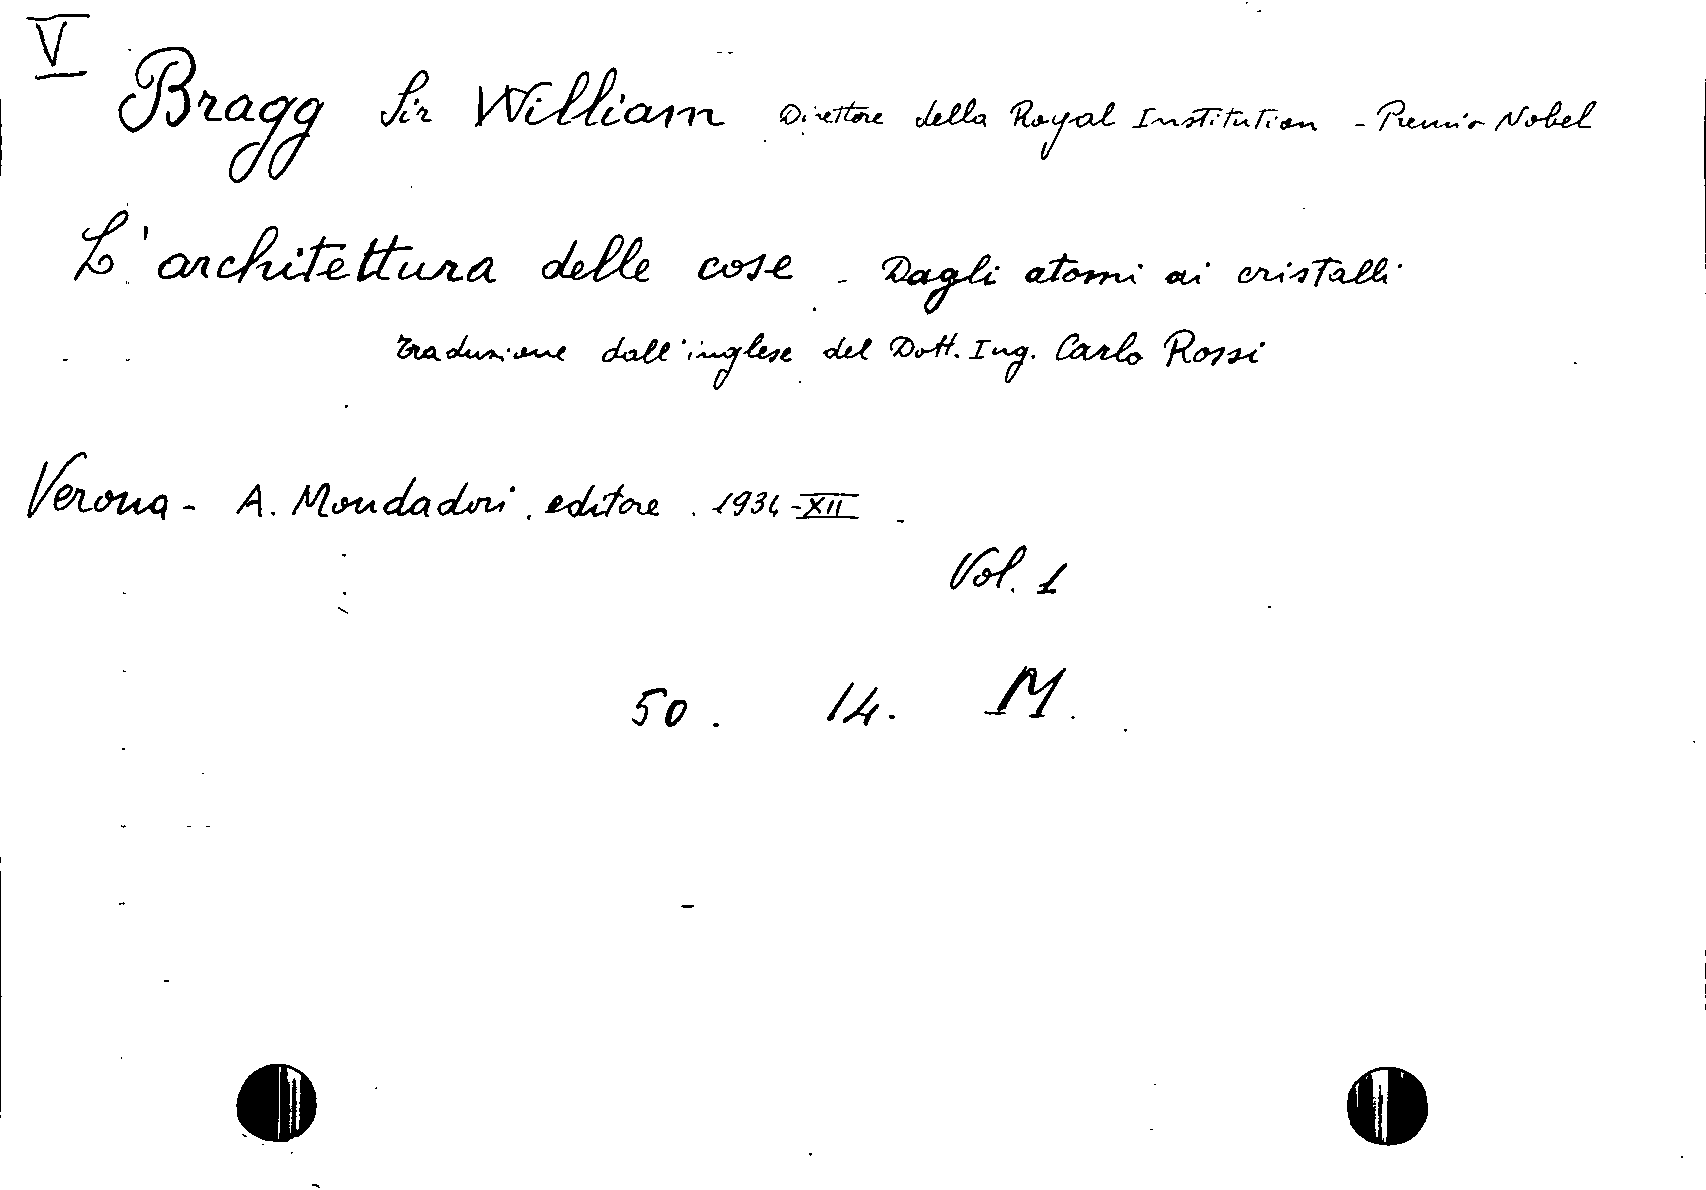 V
Bragg Sir William Direttore della Royal Institution - Premio Nobel
L'architettura delle cose - Dagli atomi ai cristalli
Traduzione dall'inglese del Dott. Ing. Carlo Rossi
Verona - A. Mondadori, editore. 1934-XII.
Vol. 1
50. 14. M.